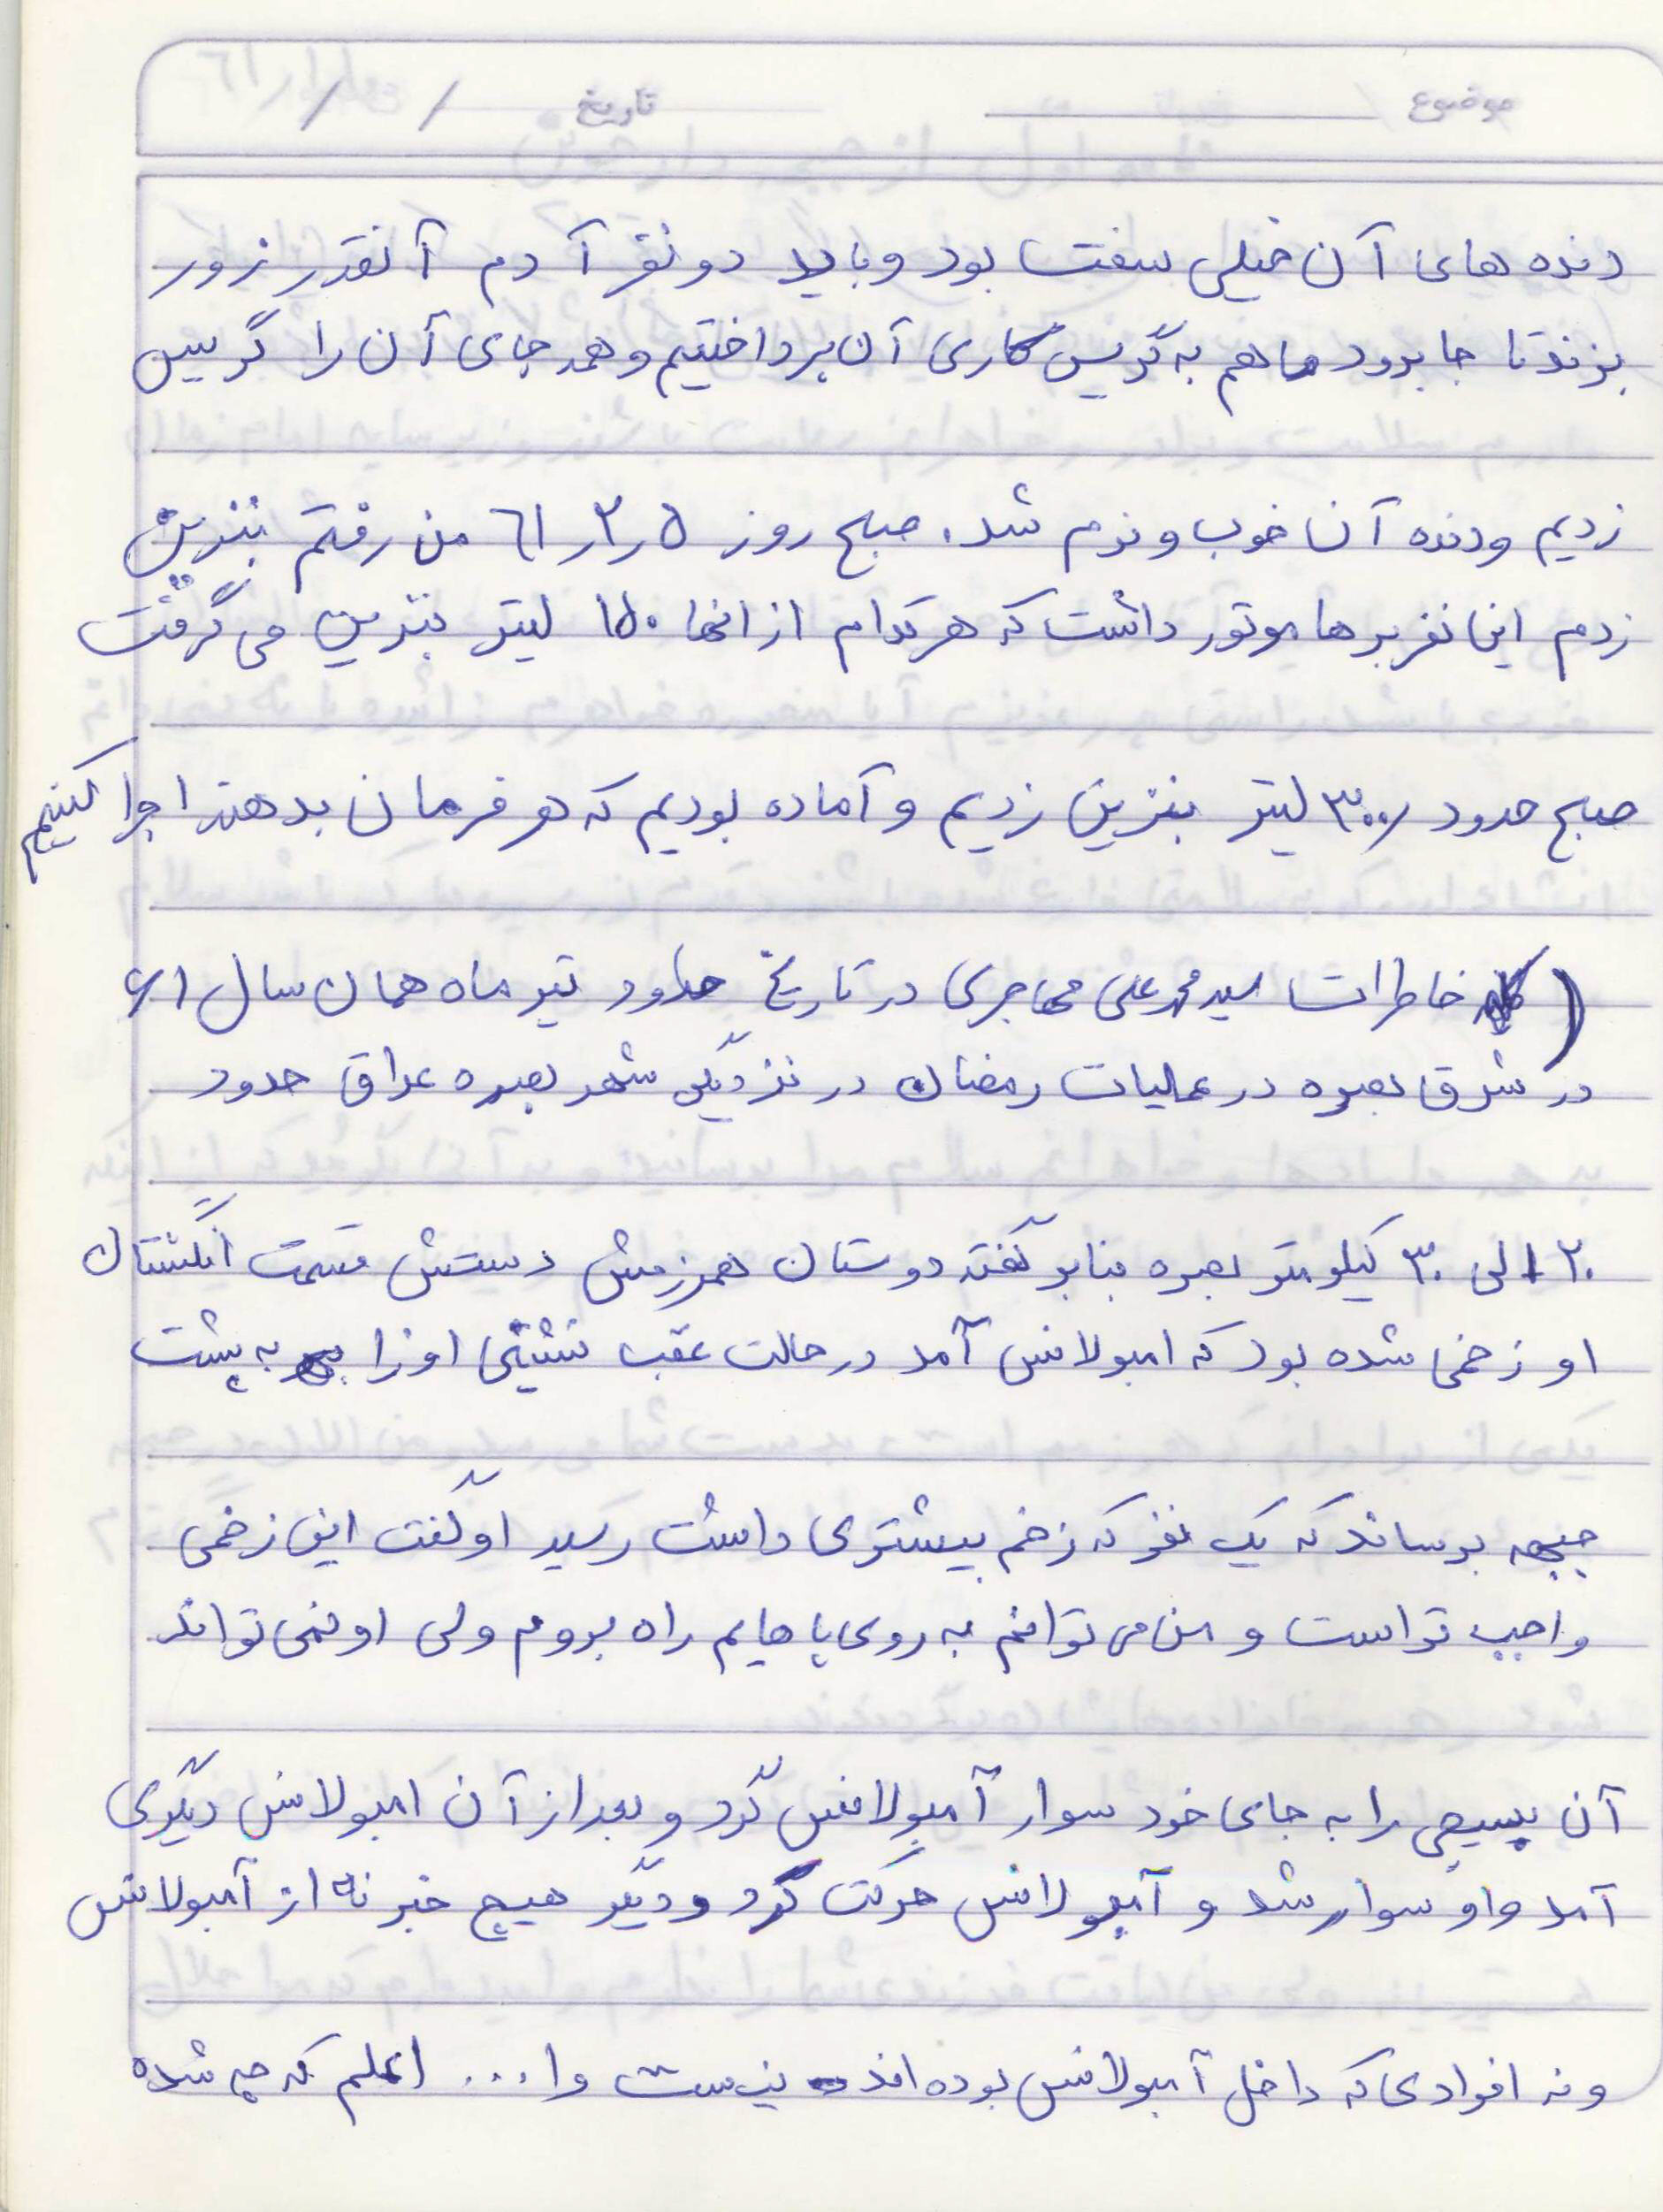 موضوع تاریخ / /
دنده های آن خیلی سفت بود و باید دو نفر آدم آنقدر زور
بزند تا جا برود ما هم به گریس کاری آن پرداختیم و همه جای آن را گریس
زدیم و دنده آن خوب و نرم شد. صبح روز ٦١٫٢٫٥ من رفتم بنزین
زدم این نفربرها موتور داشت که هر کدام از انها ١٥٠ لیتر بنزین می گرفت
صبح حدود ٣٠٠ لیتر بنزین زدیم و آماده بودیم که هر فرمان بدهند اجرا کنیم
( خاطرات سید محمد علی مهاجری در تاریخ حدود تیر ماه همان سال ۶۱
در شرق بصره در عملیات رمضان در نزدیکی شهر بصره عراق حدود
۲۰ الی ۳۰ کیلومتر بصره بنابر گفته دوستان همرزمش دستش قسمت انگشتان
او زخمی شده بود که امبولانس آمد در حالت عقب نشینی او را به پشت
جبهه برساند که یک نفر که زخم بیشتری داشت رسید او گفت این زخمی
واجب تر است و من می توانم به روی پاهایم راه بروم ولی او نمی تواند
آن بسیجی را به جای خود سوار آمبولانس کرد و بعد از آن امبولانس دیگری
آمد و او سوار شد و آمبولانس حرکت کرد و دیگر هیچ خبر نه از آمبولانس
و نه افرادی که داخل آمبولانس بوده اند نیست وا... اعلم که چه شده